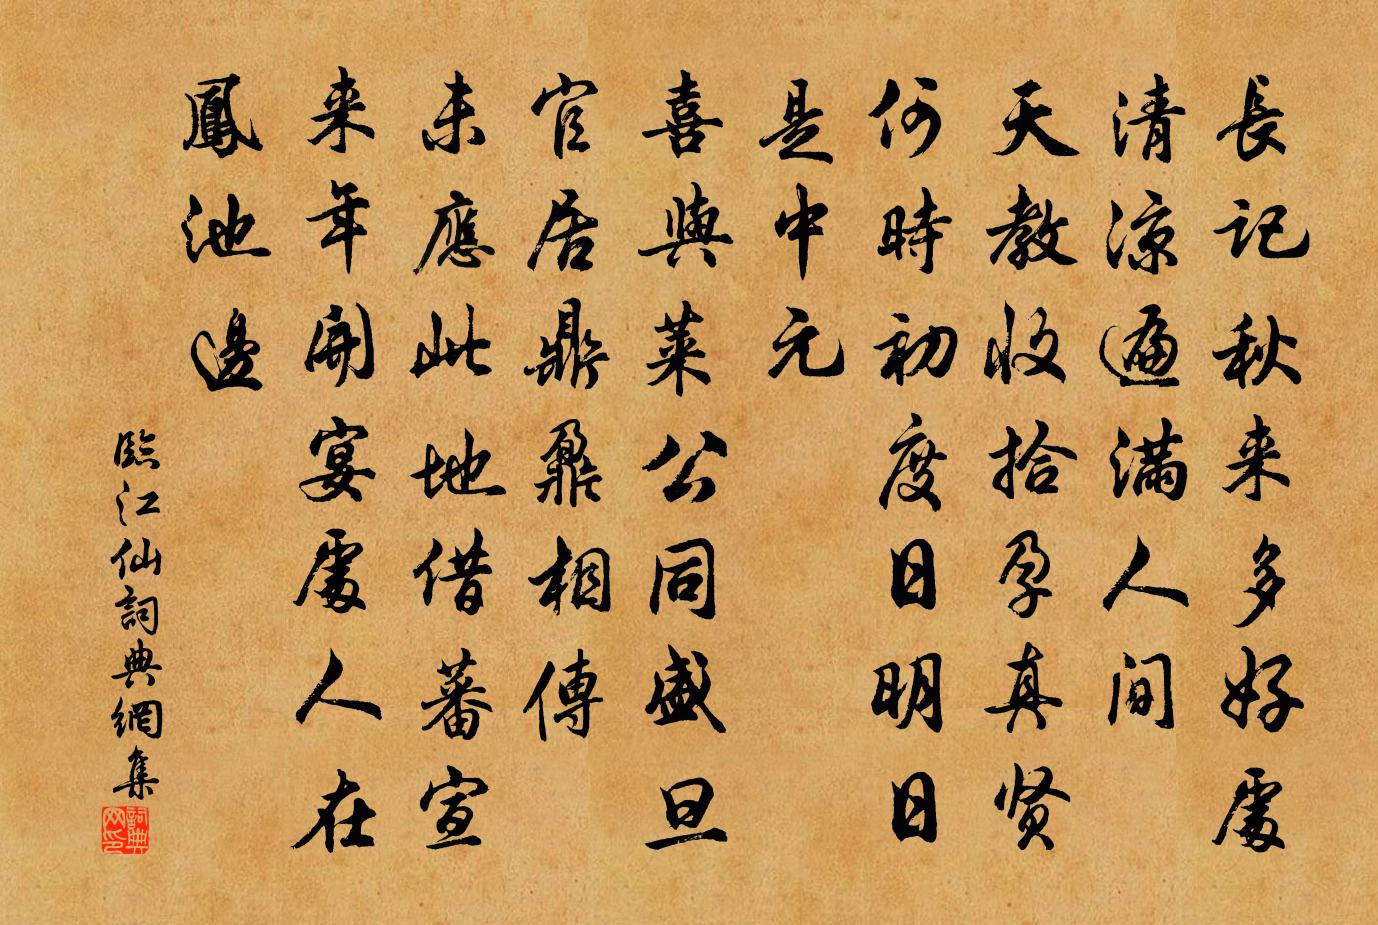 長記秋来多好處
清凉遍满人间
天教收拾孕真贤
何時初度日明日
是中元
喜與萊公同盛旦
官居鼎鼐相傳
未應此地借蕃宣
来年開宴處人在
鳳池邊
臨江仙詞典網集
詞典网印